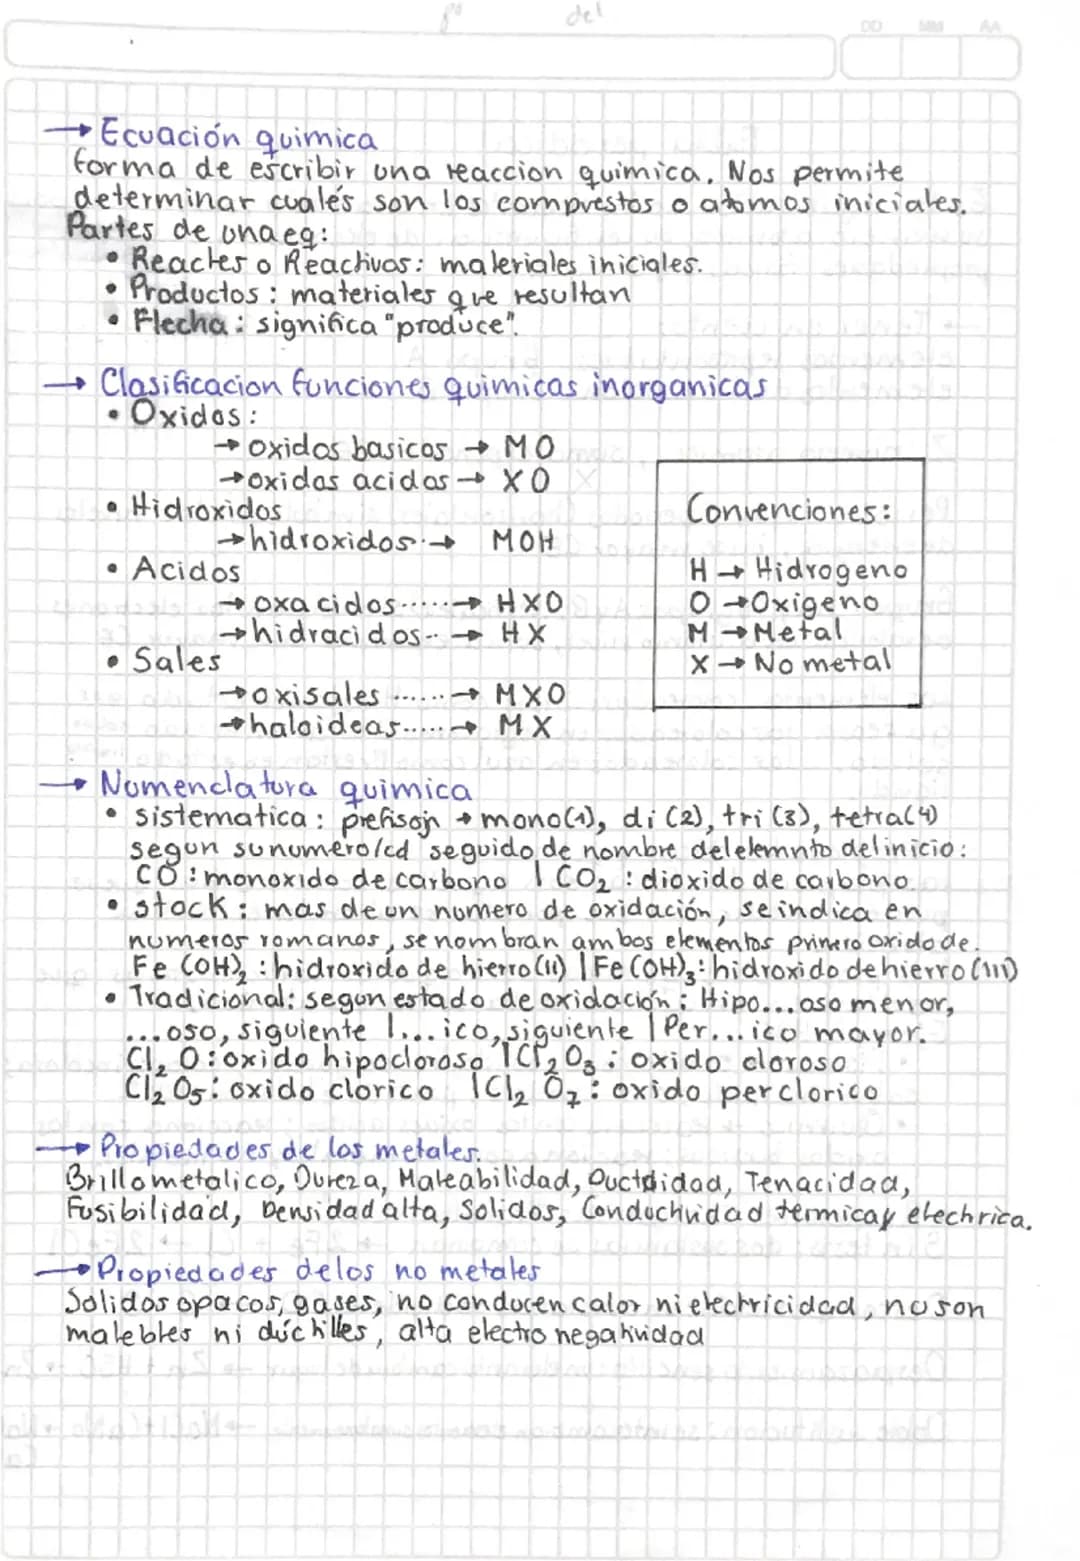 DD MM AA
→ Ecuación quimica
forma de escribir una reaccion quimica. Nos permite
determinar cuáles son los compuestos o atomos iniciales.
Partes de una eq:
• Reactes o Reactivos: materiales iniciales.
• Productos: materiales que resultan
• Flecha: significa "produce".
→ Clasificacion funciones quimicas inorganicas
• Oxidos:
→ oxidos basicos → MO
→ oxidos acidos → XO
• Hidroxidos
→ hidroxidos → MOH
• Acidos
→ oxa cidos → HXO
→ hidracidos → HX
• Sales
→ oxisales → MXO
→ haloideas → MX
Convenciones:
H → Hidrogeno
O → Oxigeno
M → Metal
X → No metal
→ Nomenclatura quimica
• sistematica: → mono(1), di (2), tri (3), tetra(4)
segun su numero/cd seguido de nombre del elemnto del inicio:
CO: monoxido de carbono | CO₂: dioxido de carbono.
• stock: mas de un numero de oxidación, se indica en
numeros romanos, se nombran ambos elementos primero oxido de.
Fe (OH)₂: hidroxido de hierro (II) | Fe(OH)₃: hidroxido de hierro (III)
• Tradicional: segun estado de oxidación: Hipo...oso menor,
...oso, siguiente |...ico, siguiente | Per...ico mayor.
Cl₂ O: oxido hipocloroso | Cl₂O₃: oxido cloroso
Cl₂ O₅: oxido clorico | Cl₂ O₇: oxido perclorico
→ Propiedades de los metales.
Brillo metalico, Dureza, Maleabilidad, Tenacidad,
Fusibilidad, Densidad alta, Solidos, Conductividad termica y electrica.
→ Propiedades de los no metales
Solidos opacos, gases, no conducen calor ni electricidad, no son
malebles ni dúctilles, alta electronegatividad